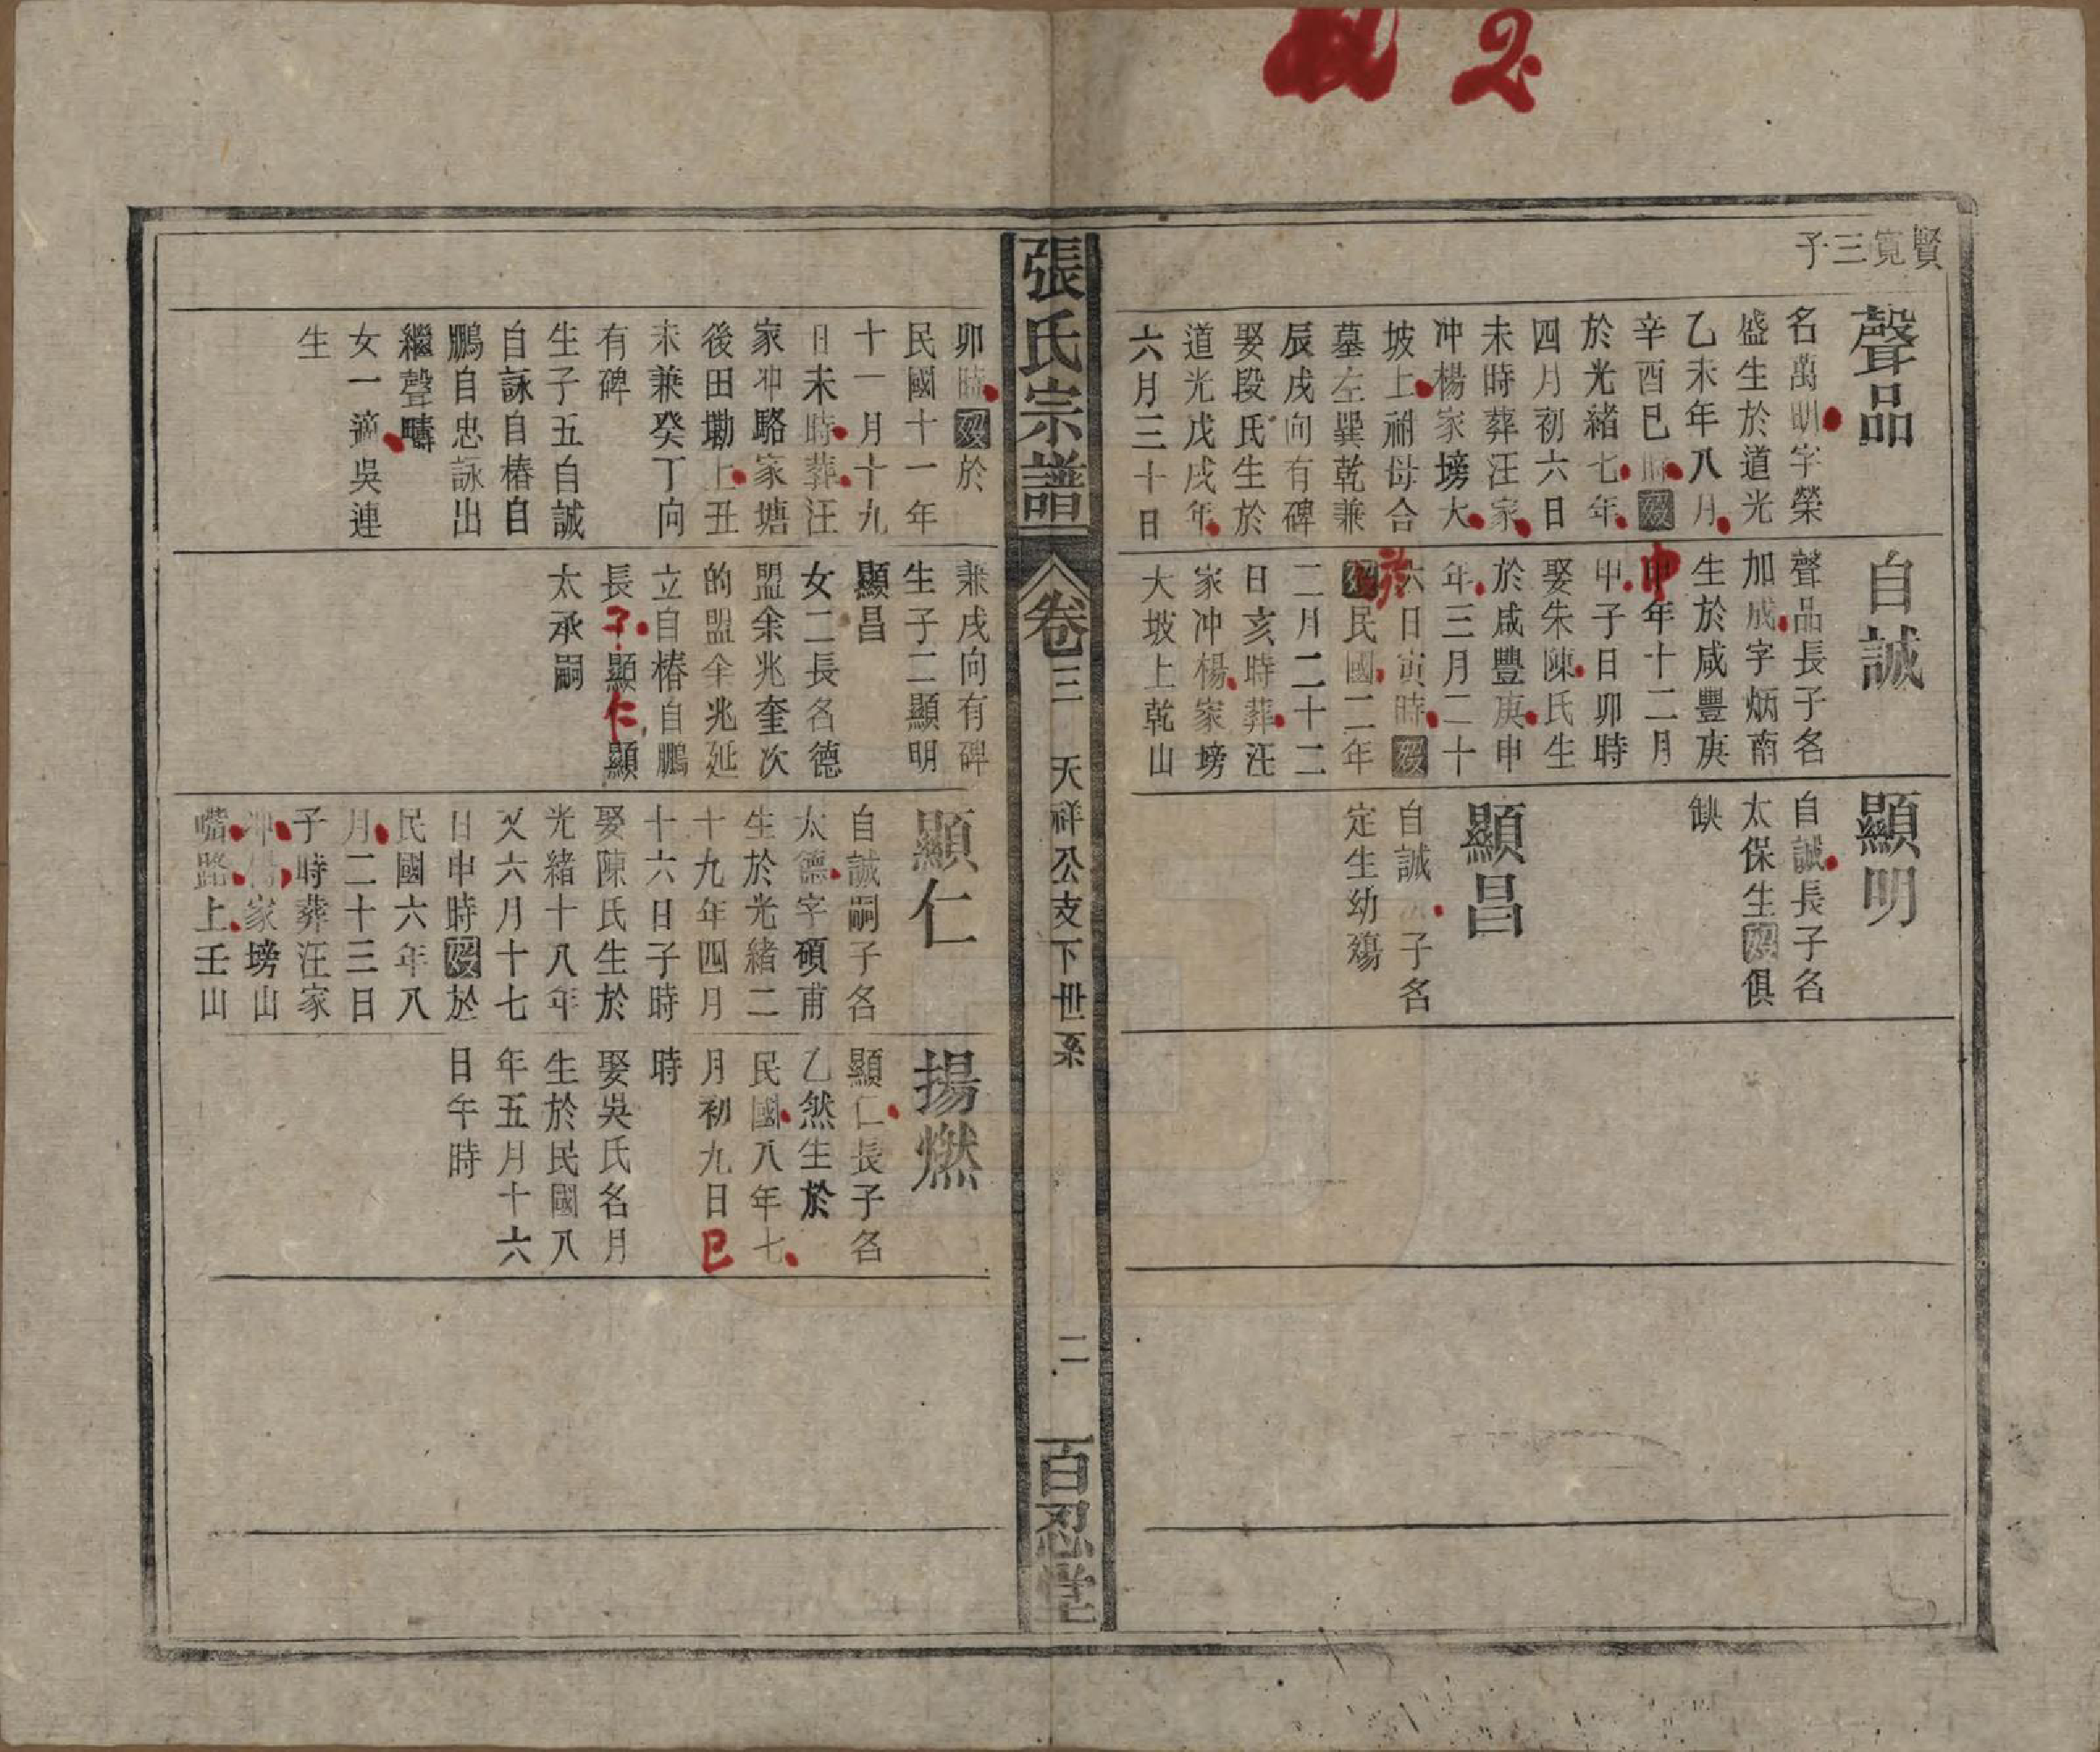 2
賢寬三子
聲品
名萬明字榮
盛生於道光
乙未年八月
辛酉巳時歿
於光緒七年
四月初六日
未時葬汪家
冲楊家塝大
坡上祔母合
墓左巽乾兼
辰戌向有碑
娶段氏生於
道光戊戌年
六月三十日
卯時歿於
民國十一年
十一月十九
日未時葬汪
家冲駱家塘
後田墈上丑
未兼癸丁向
有碑
生子五自誠
自詠自椿自
鵬自忠詠出
繼聲疇
女一適吳連
生
自誠
聲品長子名
加成字炳南
生於咸豐庚
申年十二月
甲子日卯時
娶朱陳氏生
於咸豐庚申
年三月二十
六日寅時歿
於
歿民國二年
二月二十二
日亥時葬汪
家冲楊家塝
大坡上乾山
兼戌向有碑
生子二顯明
顯昌
女二長名德
盟余兆奎次
的盟余兆延
立自椿自鵬
長子顯仁顯
太承嗣
顯明
自誠長子名
太保生歿俱
缺
顯昌
自誠 子名
定生幼殤
顯仁
自誠嗣子名
太德字碩甫
生於光緒二
十九年四月
十六日子時
娶陳氏生於
光緒十八年
又六月十七
日申時歿於
民國六年八
月二十三日
子時葬汪家
冲楊家塝山
嘴路上壬山
揚燃
顯仁長子名
乙然生於
民國八年七
月初九日巳
時
娶吳氏名月
生於民國八
年五月十六
日午時
張氏宗譜
卷三
天祥公支下世系
二
百忍堂